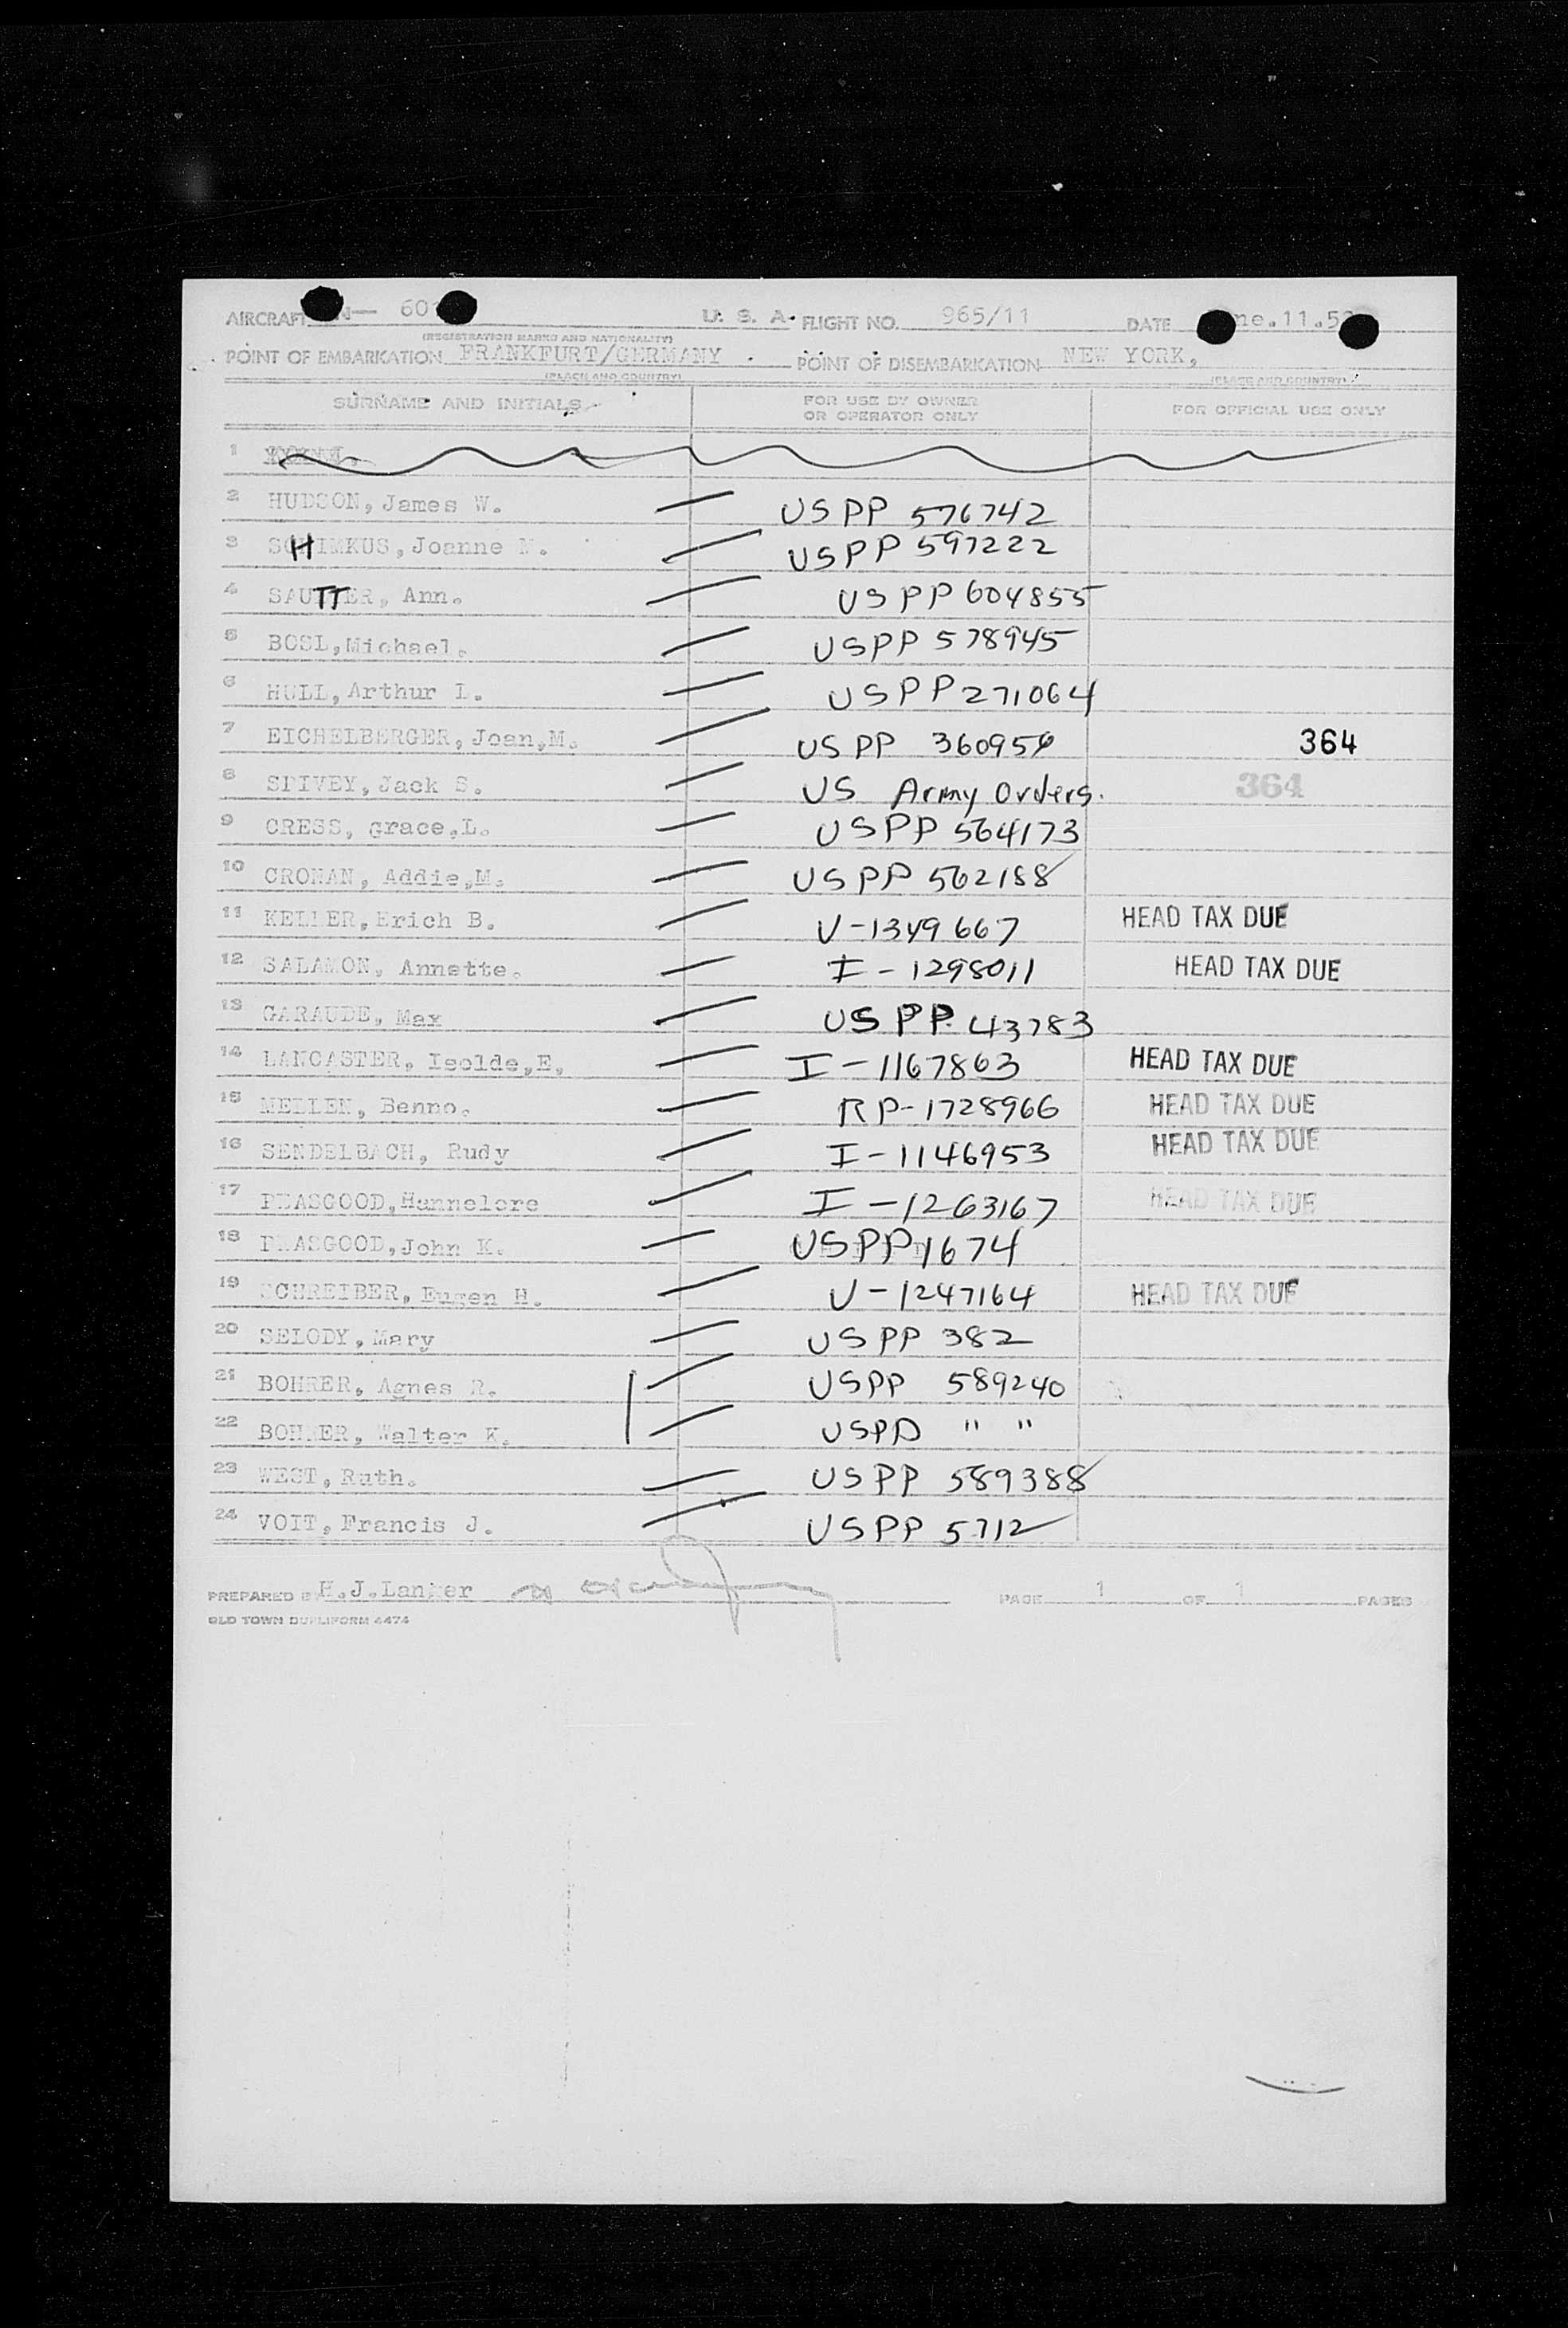 AIRCRAFT N— 601 U. S. A. FLIGHT NO. 965/11 DATE ne.11.5
(REGISTRATION MARKS AND NATIONALITY)
POINT OF EMBARKATION FRANKFURT/GERMANY POINT OF DISEMBARKATION NEW YORK,
(PLACE AND COUNTRY) (PLACE AND COUNTRY)
SURNAME AND INITIALS FOR USE BY OWNER OR OPERATOR ONLY FOR OFFICIAL USE ONLY
1
2 HUDSON, James W. USPP 576742
3 SCHIMKUS, Joanne USPP 597222
4 SAUTTER, Ann. USPP 604855
5 BOSL, Michael. USPP 578945
6 HULL, Arthur I. USPP 271064
7 EICHELBERGER, Joan,M. USPP 360956 364
8 SPIVEY, Jack S. US Army Orders. 364
9 CRESS, Grace,L. USPP 564173
10 CROMAN, Addie,M. USPP 562188
11 KELLER, Erich B. V-1349667 HEAD TAX DUE
12 SALAMON, Annette. I-1298011 HEAD TAX DUE
13 GARAUDE, Max USPP 43783
14 LANCASTER, Isolde,E, I-1167863 HEAD TAX DUE
15 MELLEN, Benno. RP-1728966 HEAD TAX DUE
16 SENDELBACH, Rudy I-1146953 HEAD TAX DUE
17 PEASGOOD, Hannelore I-1263167 HEAD TAX DUE
18 PEASGOOD, John K. USPP 1674
19 SCHREIBER, Eugen H. V-1247164 HEAD TAX DUE
20 SELODY, Mary USPP 382
21 BOHRER, Agnes R. USPP 589240
22 BOHRER, Walter K. USPP " "
23 WEST, Ruth. USPP 589388
24 VOIT, Francis J. USPP 5712
PREPARED BY H.J.Lanker PAGE 1 OF 1 PAGES
OLD TOWN DUPLIFORM 4474